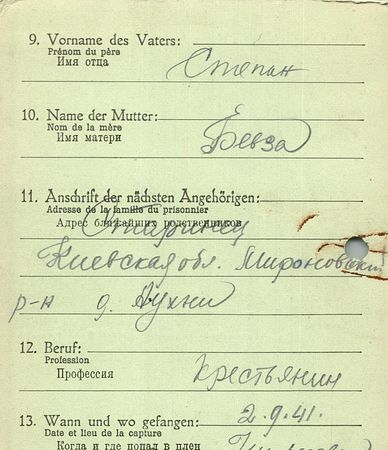 9. Vorname des Vaters:
Prénom du père
Имя отца
Степан
10. Name der Mutter:
Nom de la mère
Имя матери
Бевза
11. Anschrift der nächsten Angehörigen:
Adresse de la famille du prisonnier
Адрес ближайших родственников
Киевская обл. Мироновский
р-н д.
12. Beruf:
Profession
Профессия
Крестьянин
13. Wann und wo gefangen: 2.9.41.
Date et lieu de la capture
Когда и где попал в плен